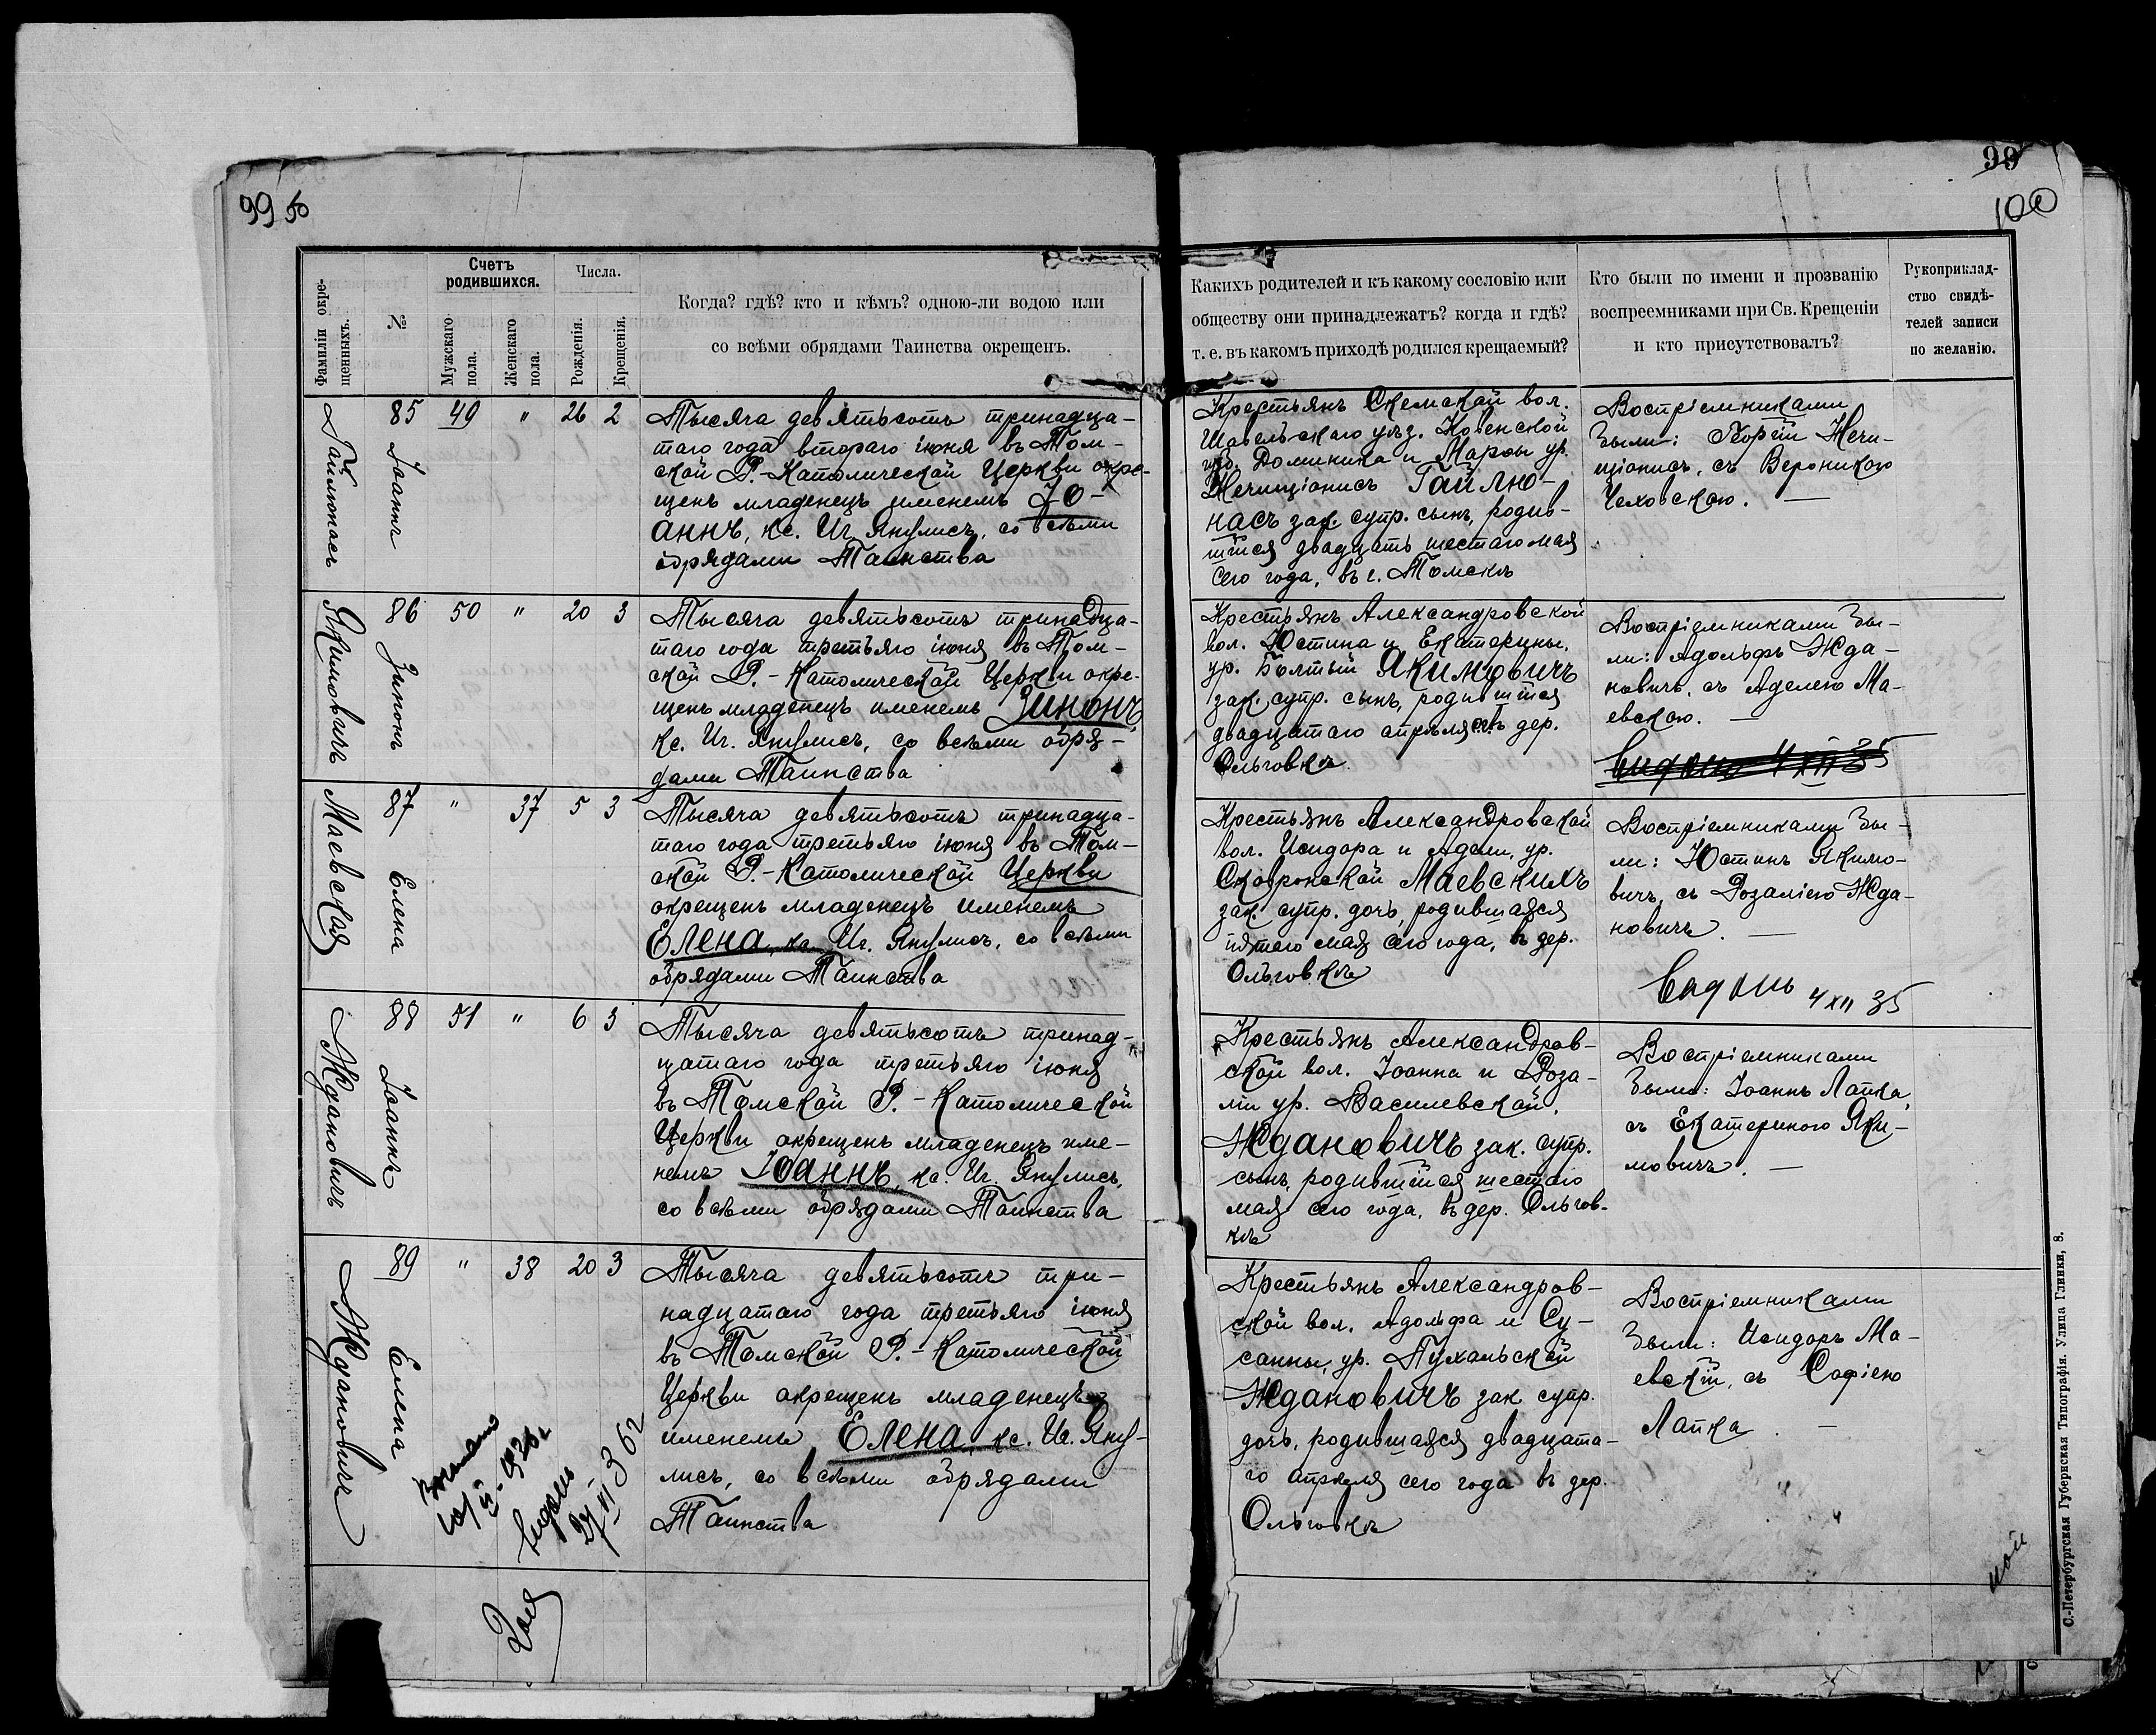 99 об
99
100
Фамиліи окре-
щенныхъ.
№
Счетъ
родившихся.
Мужскаго
пола.
Женскаго
пола.
Числа.
Рожденія.
Крещенія.
Когда? гдѣ? кто и кѣмъ? одною-ли водою или
со всѣми обрядами Таинства окрещенъ.
Какихъ родителей и къ какому сословію или
обществу они принадлежатъ? когда и гдѣ?
т. е. въ какомъ приходѣ родился крещаемый?
Кто были по имени и прозванію
воспреемниками при Св. Крещеніи
и кто присутствовалъ?
Рукоприклад-
ство свидѣ-
телей записи
по желанію.
Гайлюнасъ
85
Іоаннъ
49 " 26 2
Тысяча девятьсотъ тринадца-
таго года втораго іюня въ Том-
ской Р.-Католической Церкви окре-
щенъ младенецъ именемъ Іо-
аннъ, кс. Иг. Янулисъ, со всѣми
обрядами Таинства
Крестьянъ Скемской вол.
Шавельскаго уѣз. Ковенской
губ. Доминика и Марѳы ур.
Нечиціонисъ Гайлю-
насъ зак. супр. сынъ, родив-
шійся двадцать шестаго мая
сего года, въ г. Томскѣ
Воспріемниками
были: Георгій Нечи-
ціонисъ, съ Вероникою
Чеховскою. —
Якимовичъ
86
Зинонъ
50 " 20 3
Тысяча девятьсотъ тринадца-
таго года третьяго іюня въ Том-
ской Р.-Католической Церкви окре-
щенъ младенецъ именемъ Зинонъ,
кс. Иг. Янулисъ, со всѣми обря-
дами Таинства
Крестьянъ Александровской
вол. Юстина и Екатерины,
ур. Болтый Якимовичъ
зак. супр. сынъ, родившійся
двадцатаго апрѣля въ дер.
Ольговкѣ
Воспріемниками бы-
ли: Адольфъ Жда-
новичъ, съ Аделею Ма-
евскою. —
Видано 4 XII 35
Маевская
87
Елена
" 37 5 3
Тысяча девятьсотъ тринадца-
таго года третьяго іюня въ Том-
ской Р.-Католической Церкви
окрещенъ младенецъ именемъ
Елена, кс. Иг. Янулисъ, со всѣми
обрядами Таинства
Крестьянъ Александровской
вол. Исидора и Адели, ур.
Сковронской Маевскихъ
зак. супр. дочь, родившаяся
пятаго мая сего года, въ дер.
Ольговкѣ
Воспріемниками бы-
ли: Юстинъ Якимо-
вичъ, съ Розаліею Жда-
новичъ. —
4 XII 35
Ждановичъ
88
Іоаннъ
51 " 6 3
Тысяча девятьсотъ тринад-
цатаго года третьяго іюня
въ Томской Р.-Католической
Церкви окрещенъ младенецъ име-
немъ Іоаннъ, кс. Иг. Янулисъ,
со всѣми обрядами Таинства
Крестьянъ Александров-
ской вол. Іоанна и Роза-
ліи ур. Василевской,
Ждановичъ зак. супр.
сынъ, родившійся шестаго
мая сего года, въ дер. Ольгов-
кѣ
Воспріемниками
были: Іоаннъ Лапка,
съ Екатериною Яки-
мовичъ. —
Ждановичъ
89
Елена
" 38 20 3
Тысяча девятьсотъ три-
надцатаго года третьяго іюня
въ Томской Р.-Католической
Церкви окрещенъ младенецъ
именемъ Елена, кс. Иг. Яну-
лисъ, со всѣми обрядами
Таинства
Крестьянъ Александров-
ской вол. Адольфа и Су-
санны, ур. Пухальской
Ждановичъ зак. супр.
дочь, родившаяся двадцата-
го апрѣля сего года въ дер.
Ольговкѣ
Воспріемниками
были: Исидоръ Ма-
евскій, съ Софіею
Лапка —
С.-Петербургская Губернская Типографія. Улица Глинки, 8.